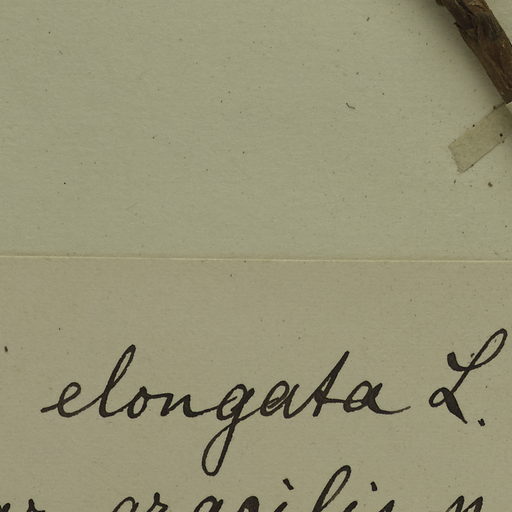 elongata L.
gracilis